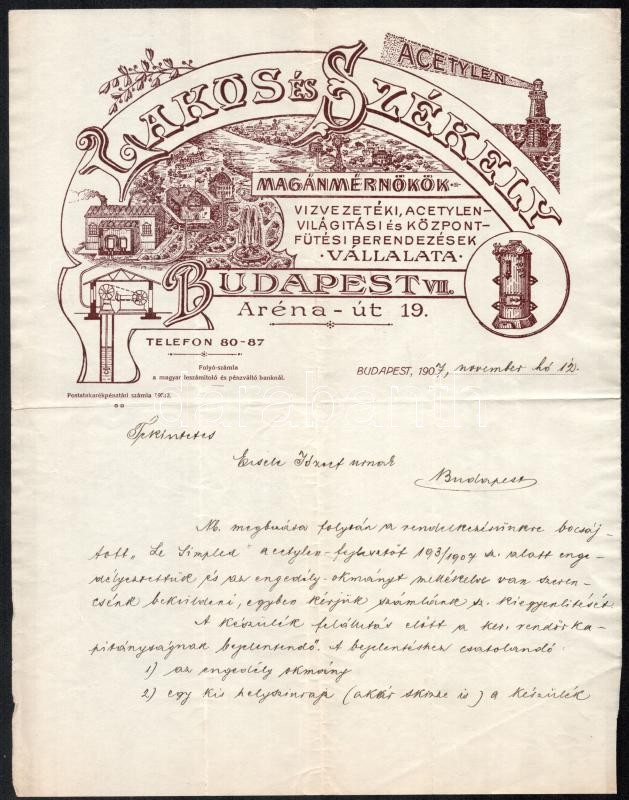 ACETYLEN
LAKOS ÉS SZÉKELY
MAGÁNMÉRNÖKÖK
VIZVEZETÉKI, ACETYLEN-
VILÁGITÁSI és KÖZPONT-
FŰTÉSI BERENDEZÉSEK
· VÁLLALATA ·
BUDAPEST VII.
Aréna-út 19.
TELEFON 80-87
Folyó-számla
a magyar leszámitoló és pénzváltó banknál.
Postatakarékpénztári számla
BUDAPEST, 1907, november hó 12.
Tekintetes
Eisele József urnak
Budapest
M. megbizása folytán a rendelkezésünkre bocsáj-
tott „Le Simplex" acetylen-fejlesztőt 193/1907 sz. alatt enge-
délyeztettük és az engedély-okmányt mellékelve van szeren-
csénk beküldeni, egyben kérjük számlánk sz. kiegyenlitését.
A készülék felállitás előtt a ker. rendőrka-
pitányságnak bejelentendő. A bejelentéshez csatolandó:
1) az engedély okmány
2) egy kis helyszinrajz (akár skizze is) a készülék